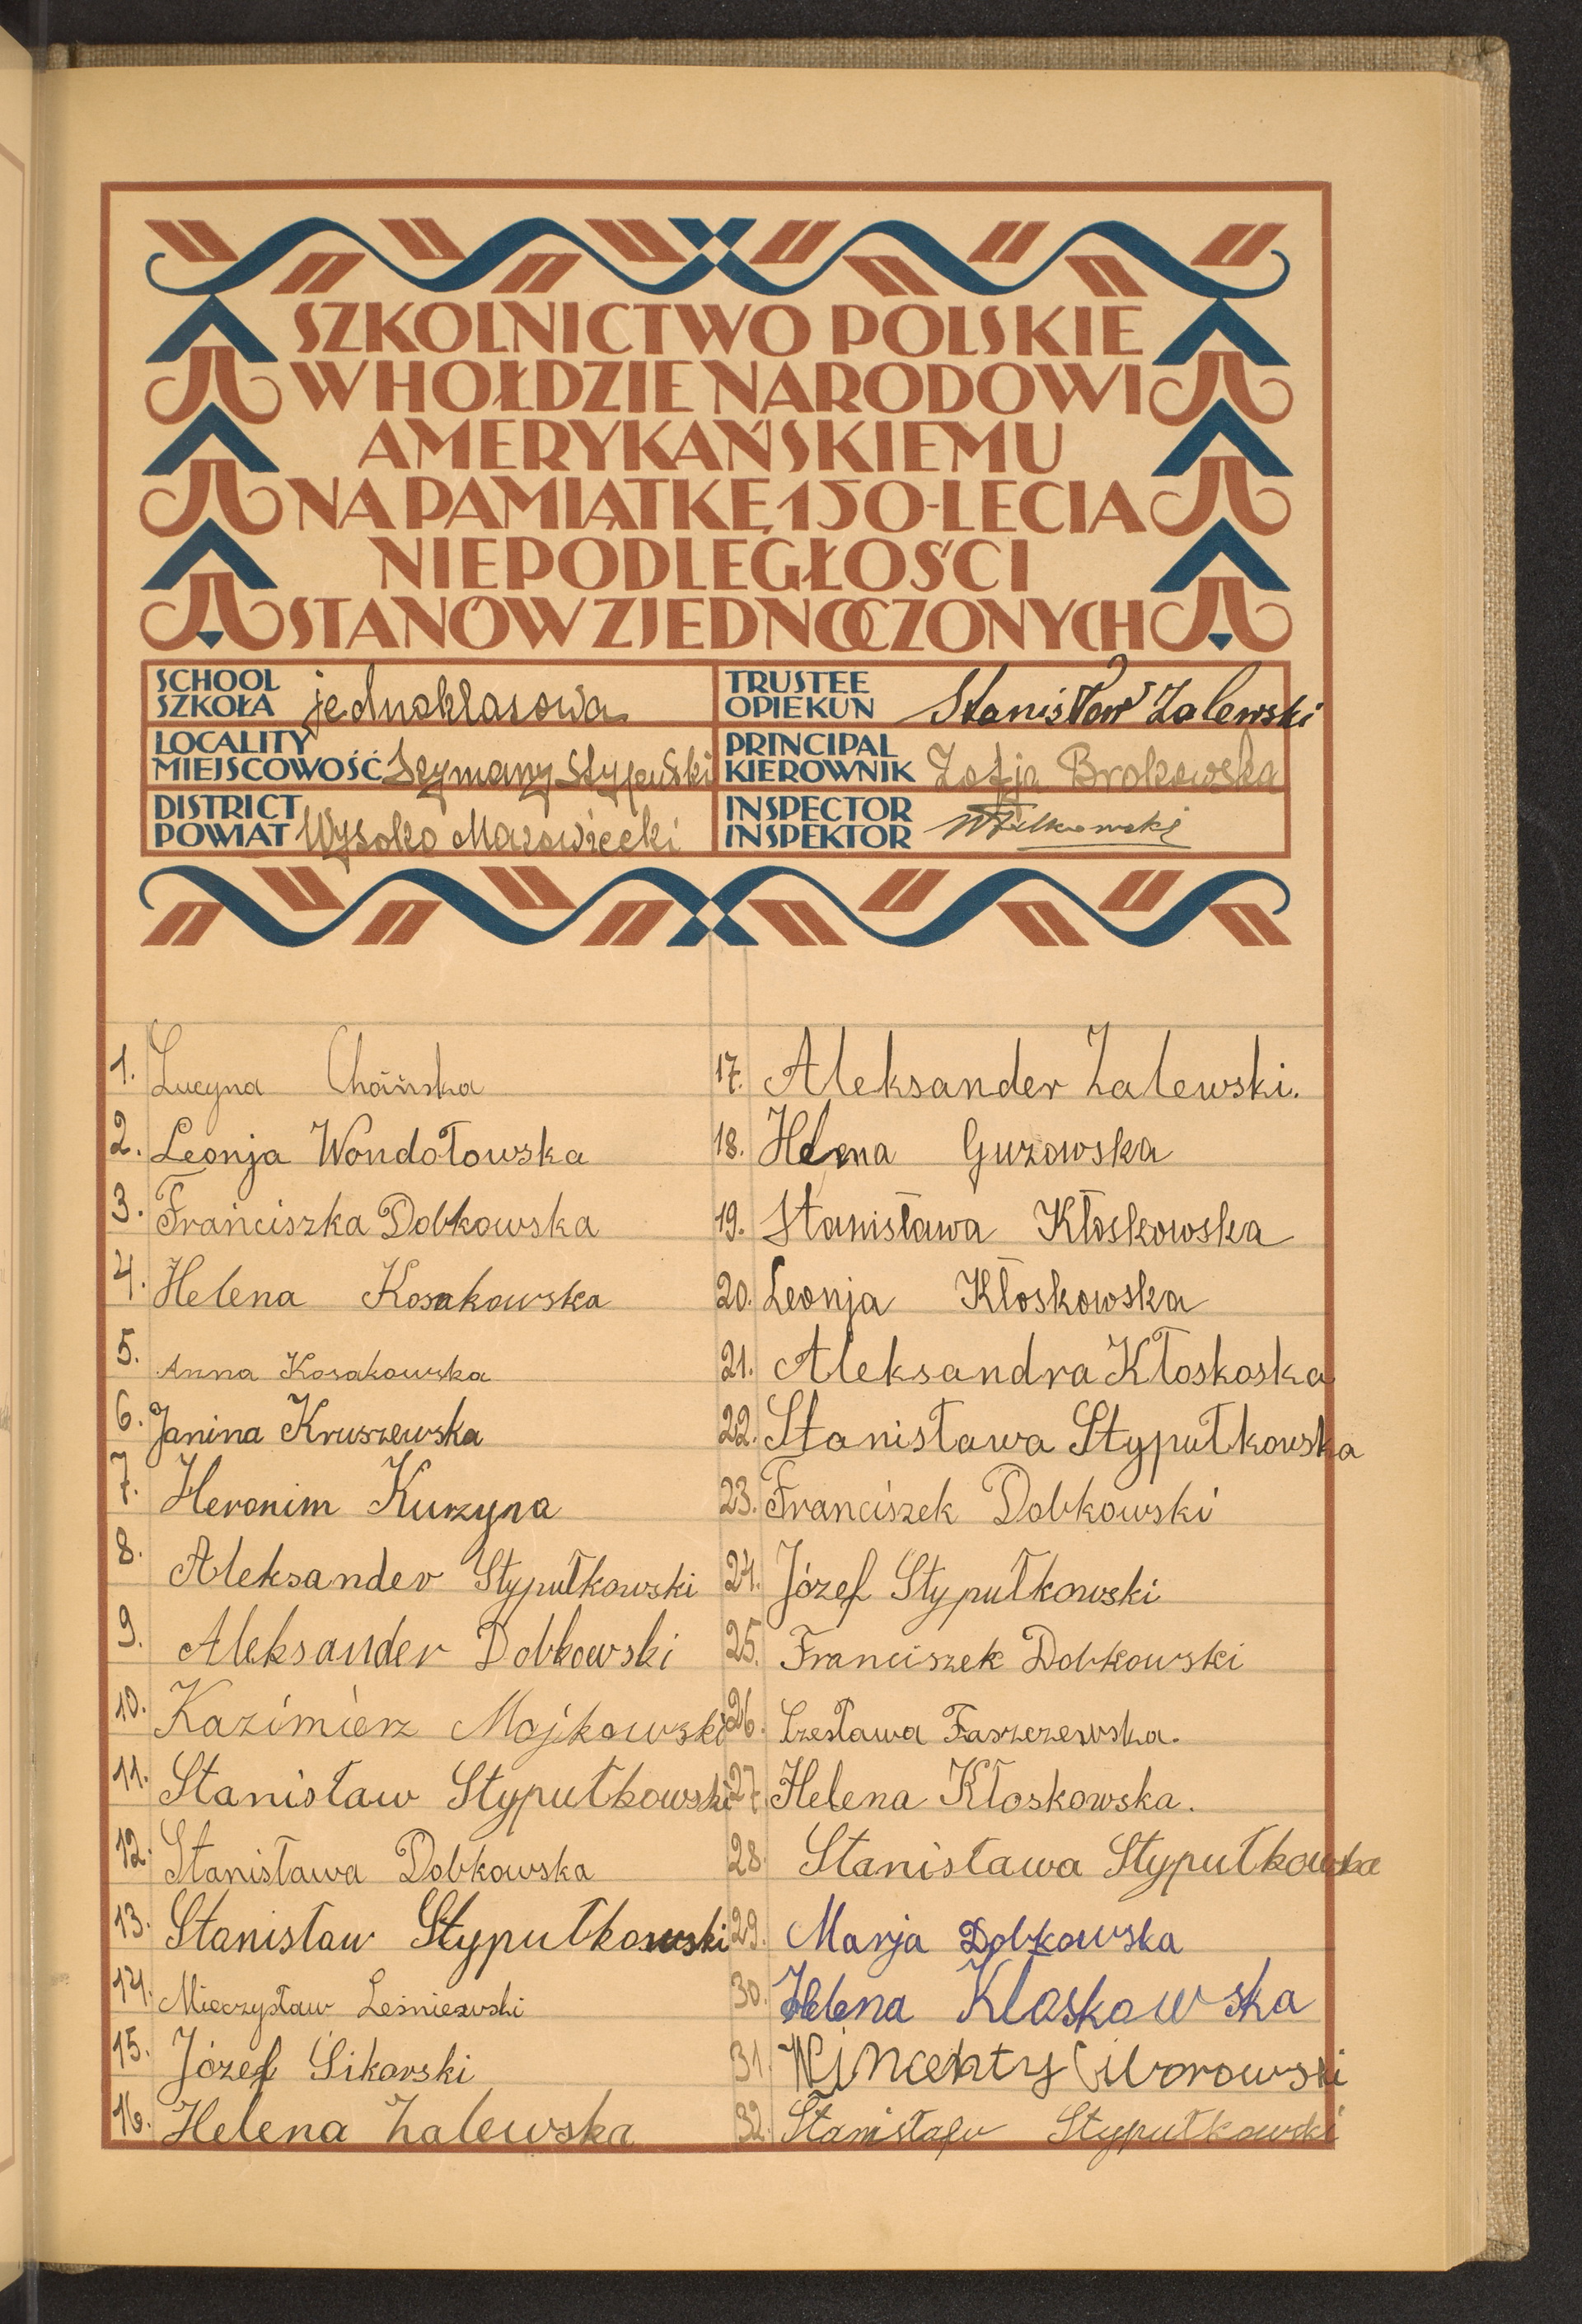 SZKOLNICTWO POLSKIE
W HOŁDZIE NARODOWI
AMERYKAŃSKIEMU
NA PAMIĄTKĘ 150-LECIA
NIEPODLEGŁOŚCI
STANÓW ZJEDNOCZONYCH
SCHOOL
SZKOŁA jednoklasowa
TRUSTEE
OPIEKUN Stanisław Zalewski
LOCALITY
MIEJSCOWOŚĆ Szymany
PRINCIPAL
KIEROWNIK Zofja Brokowska
DISTRICT
POWIAT Wysoko Mazowiecki
INSPECTOR
INSPEKTOR
1. Lucyna Choińska
2. Leonja Wondołowska
3. Franciszka Dobkowska
4. Helena Kosakowska
5. Anna Kosakowska
6. Janina Kruszewska
7. Heronim Kurzyna
8. Aleksander Stypułkowski
9. Aleksander Dobkowski
10. Kazimierz Mojkowski
11. Stanisław Stypułkowski
12. Stanisława Dobkowska
13. Stanisław Stypułkowski
14. Mieczysław Leśniewski
15. Józef Sikorski
16. Helena Zalewska
17. Aleksander Zalewski.
18. Helena Guzowska
19. Stanisława Kłoskowska
20. Leonja Kłoskowska
21. Aleksandra Kłoskoska
22. Stanisława Stypułkowska
23. Franciszek Dobkowski
24. Józef Stypułkowski
25. Franciszek Dobkowski
26. Czesława Faszczewska.
27. Helena Kłoskowska.
28. Stanisława Stypułkowska
29. Marja Dobkowska
30. Helena Kloskowska
31. Wincenty Ciborowski
32. Stanisław Stypułkowski